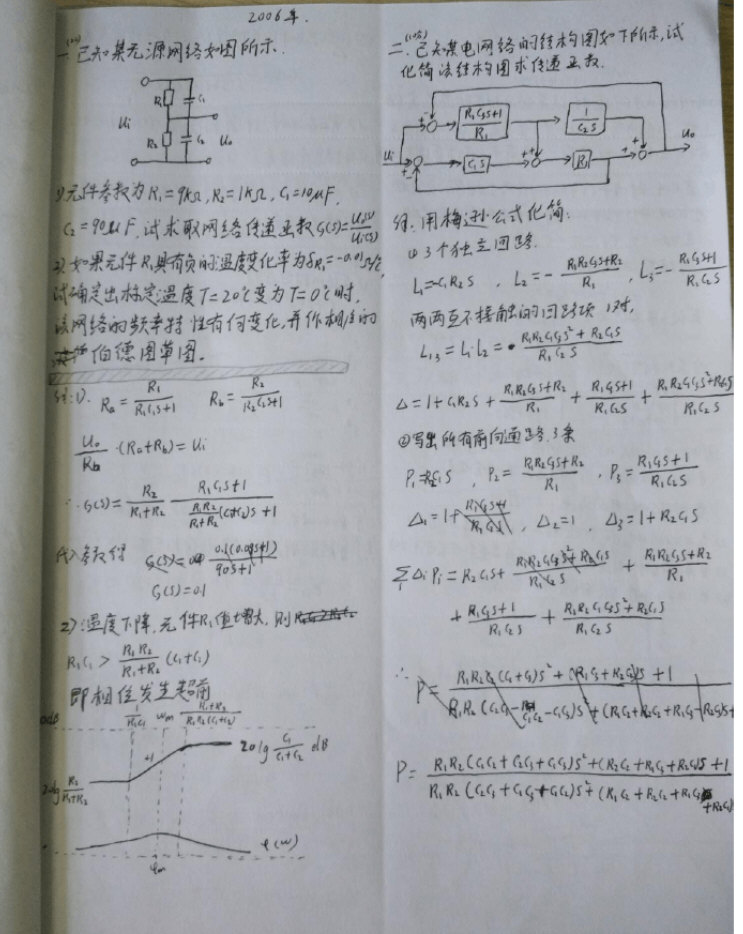 2006年.
一、(20) 已知某无源网络如图所示.
R₁
C₁
Ui
R₂
C₂
Uo
1) 元件参数为 R₁=9kΩ, R₂=1kΩ, C₁=10μF,
C₂=90μF, 试求取网络传递函数 G(s)=Uo(s)/Ui(s)
2) 如果元件R₁具有负的温度变化率为δR₁=-0.01
试确定出标定温度 T=20℃变为T=0℃时,
该网络的频率特性有何变化,并作相应的
伯德图草图。
解:1). Ra = R₁/(R₁C₁s+1) Rb = R₂/(R₂C₂s+1)
Uo/Rb ·(Ra+Rb) = Ui
∴ G(s) = R₂/(R₁+R₂) (R₁C₁s+1)/(R₁R₂/(R₁+R₂)(C₁+C₂)s+1)
代入参数得 G(s)= 0.1(0.09s+1)/90s+1
G(s)=0.1
2) 温度下降,元件R₁值增大,则
R₁C₁ > R₁R₂/(R₁+R₂) (C₁+C₂)
即相位发生超前
0dB 1/R₁C₁ ωm (R₁+R₂)/(R₁R₂(C₁+C₂))
+1 20lg C₁/(C₁+C₂) dB
20lg R₂/(R₁+R₂)
φ(ω)
φm
二、(10分) 已知某电网络的结构图如下所示,试
化简该结构图求传递函数.
(R₁C₃s+1)/R₁
1/C₂s
Ui
C₁s
R₂
Uo
解:用梅逊公式化简:
① 3个独立回路.
L₁=-C₁R₂s , L₂=-(R₁R₂C₃s+R₂)/R₁ , L₃=-(R₁C₃s+1)/(R₁C₂s)
两两互不接触的回路项 1对,
L₁₃=L₁L₂= (R₁R₂C₁C₃s²+R₂C₁s)/(R₁C₂s)
Δ=1+C₁R₂s+(R₁R₂C₃s+R₂)/R₁+(R₁C₃s+1)/(R₁C₂s)+(R₁R₂C₁C₃s²+R₂C₁s)/(R₁C₂s)
②写出所有前向通路. 3条
P₁=R₂C₁s , P₂=(R₁R₂C₃s+R₂)/R₁ , P₃=(R₁C₃s+1)/(R₁C₂s)
Δ₁=1+(R₁C₃s+1)/(R₁C₂s) , Δ₂=1 , Δ₃=1+R₂C₁s
∑ΔiPi=R₂C₁s+(R₁R₂C₁C₃s²+R₂C₁s)/(R₁C₂s)+(R₁R₂C₃s+R₂)/R₁
+(R₁C₃s+1)/(R₁C₂s)+(R₁R₂C₁C₃s²+R₂C₁s)/(R₁C₂s)
∴
P=
P=(R₁R₂(C₁C₂+C₂C₃+C₁C₃)s²+(R₂C₂+R₁C₃+R₂C₁)s+1)/(R₁R₂(C₂C₃+C₁C₃+C₁C₂)s²+(R₁C₂+R₂C₂+R₁C₃+R₂C₁)